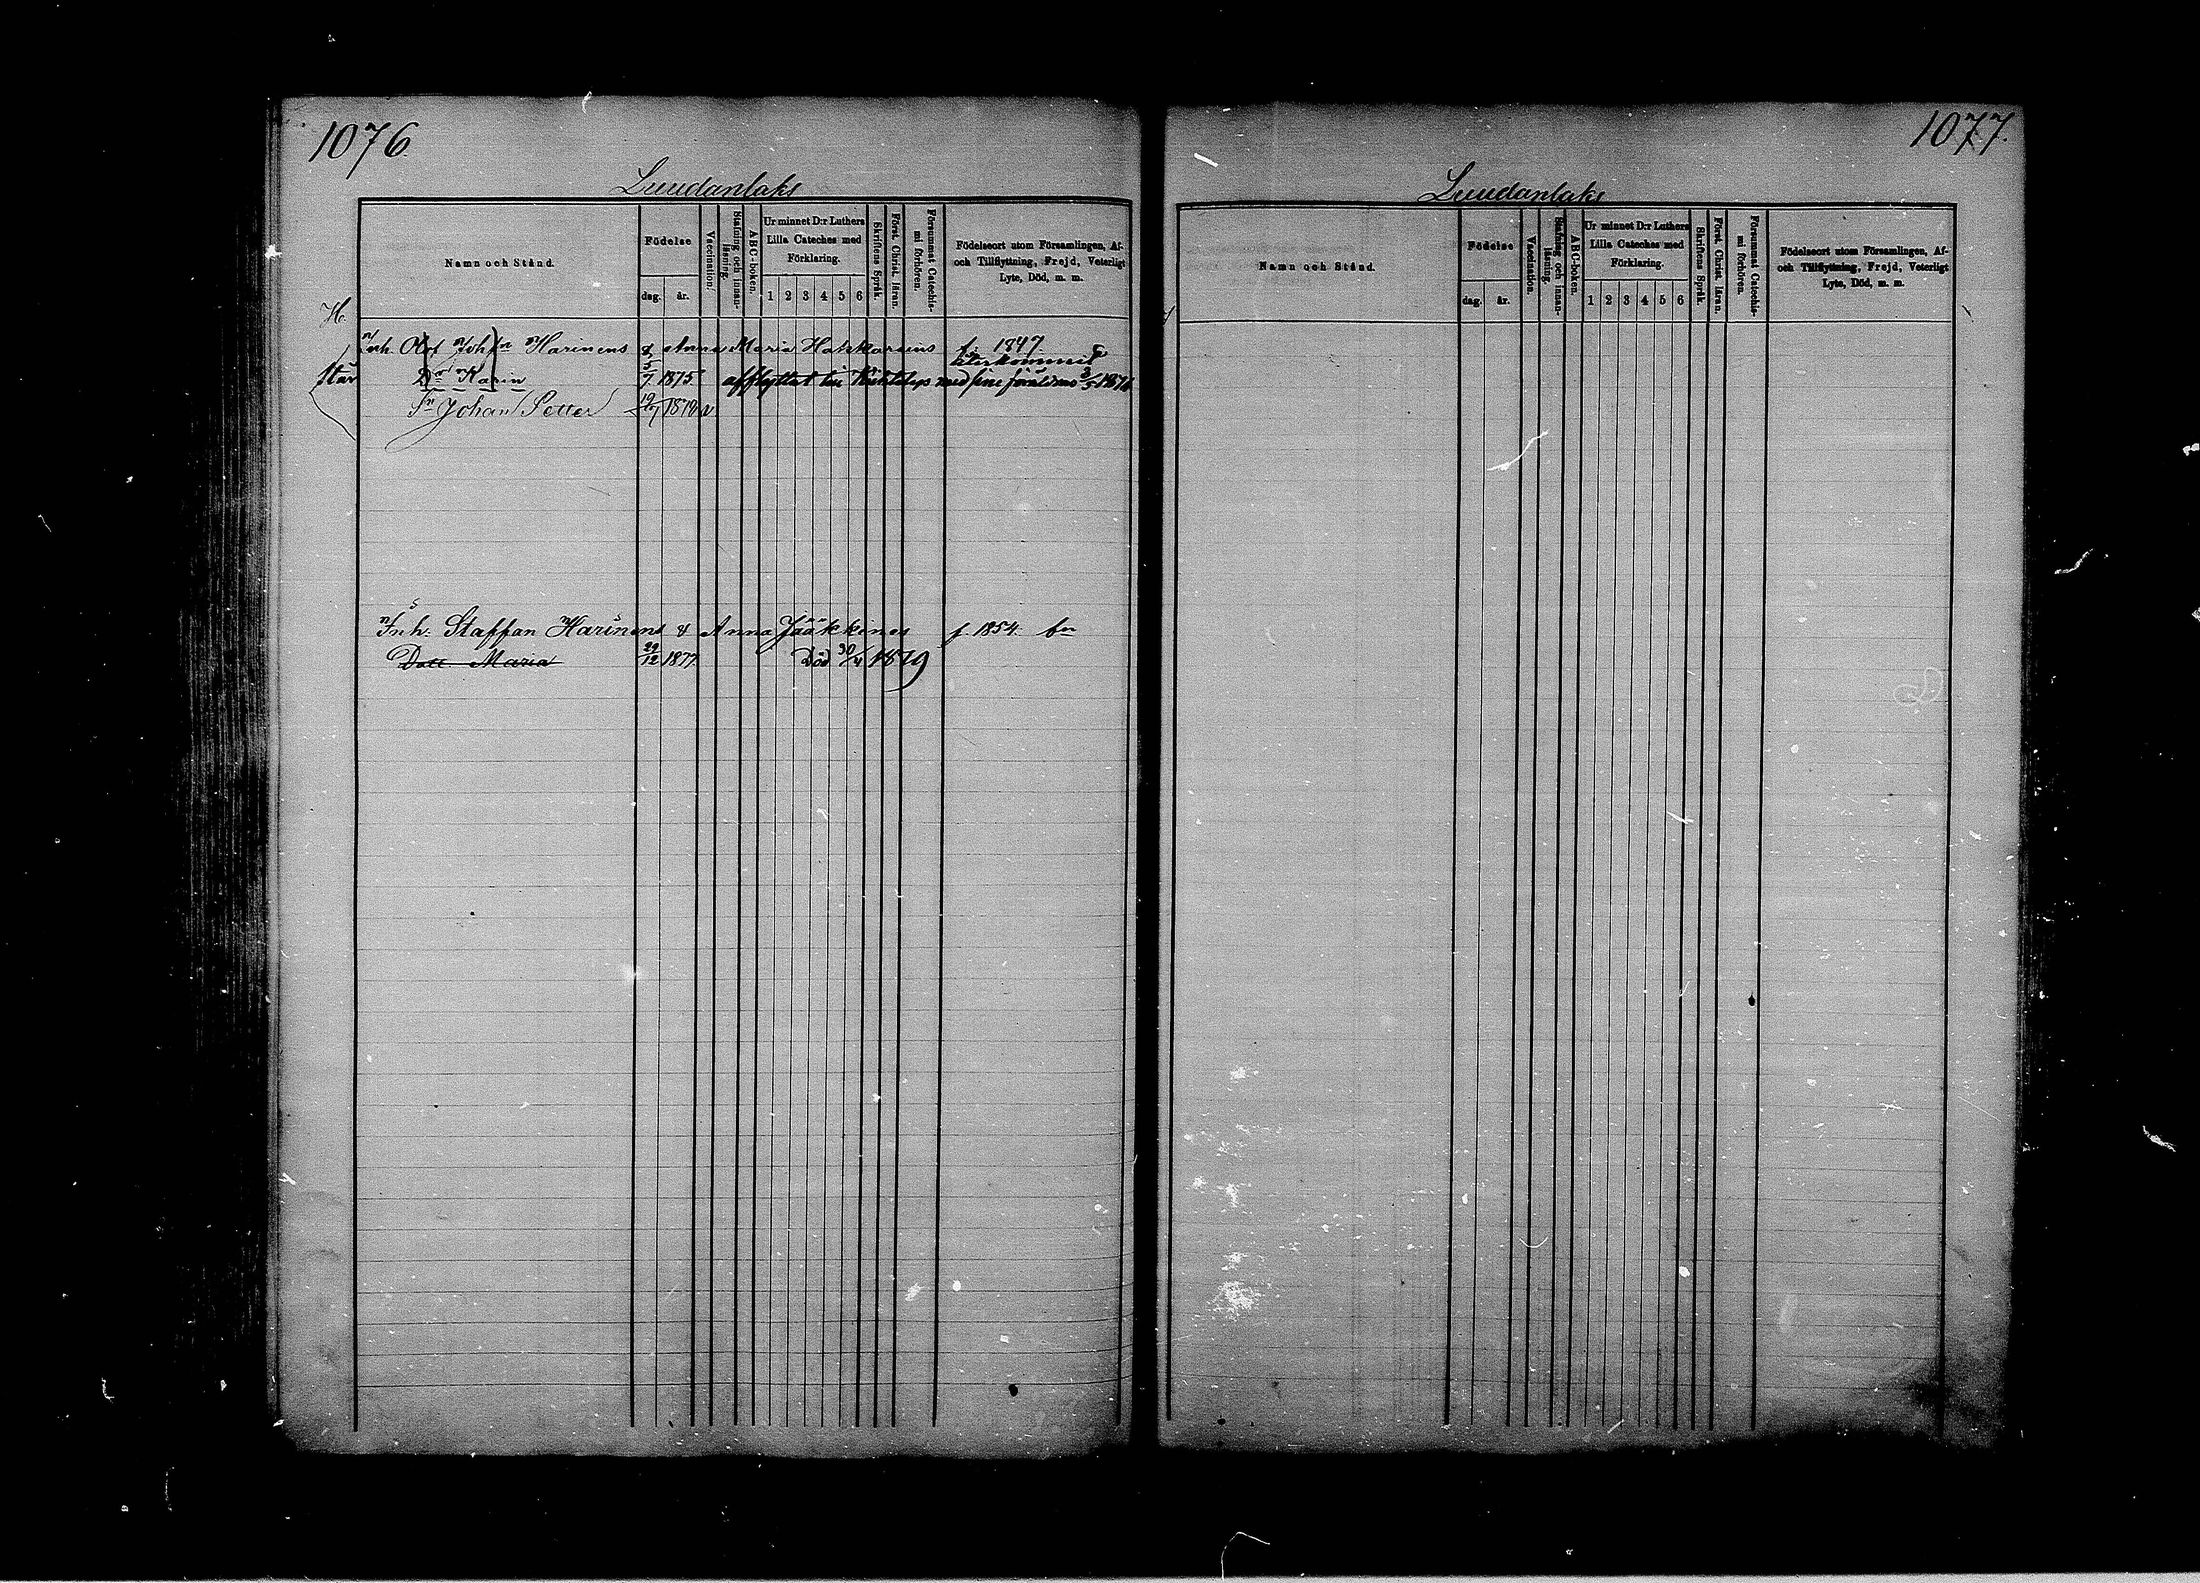 1076.
Luudanlaks
Namn och Stånd.
Födelse
dag. år.
Vaccination.
Stafning och innan-läsning.
ABC-boken.
Ur minnet D:r Luthers Lilla Cateches med Förklaring.
1 2 3 4 5 6
Skriftens Språk.
Först. Christ. läran.
Försummat Catechis-mi förhören.
Födelseort utom Församlingen, Af- och Tillflyttning, Frejd, Veterligt Lyte, Död, m. m.
H.
Inh. Olof Joh:sn Harinens & Anna Maria f. 1847
återkommit
står Dr Karin 5/7 1875 afflyttat med sine föräldrar 3/5 1876
Sn Johan Petter 19/7
Inh. Staffan Harinens & Anna Jääkkines f. 1854.
Dott Maria 29/12 1877 Död 30/4 1879
1077.
Luudanlaks
Namn och Stånd.
Födelse
dag. år.
Vaccination.
Stafning och innan-läsning.
ABC-boken.
Ur minnet D:r Luthers Lilla Cateches med Förklaring.
1 2 3 4 5 6
Skriftens Språk.
Först. Christ. läran.
Försummat Catechis-mi förhören.
Födelseort utom Församlingen, Af- och Tillflyttning, Frejd, Veterligt Lyte, Död, m. m.